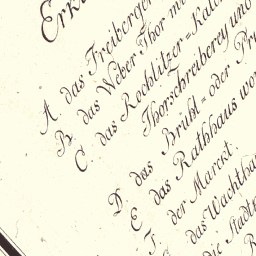 Erkl
A. das Freiberger
B. das Weber Thor
C. das Rochlitzer=
Thorschreiberey und
D. das Brühl= oder
E. das Rathhaus
F. der Marckt.
das Wachthau
die Stadt